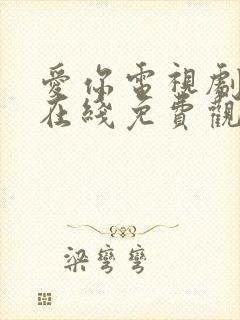 愛你電視劇
在綫免費觀
梁彎彎